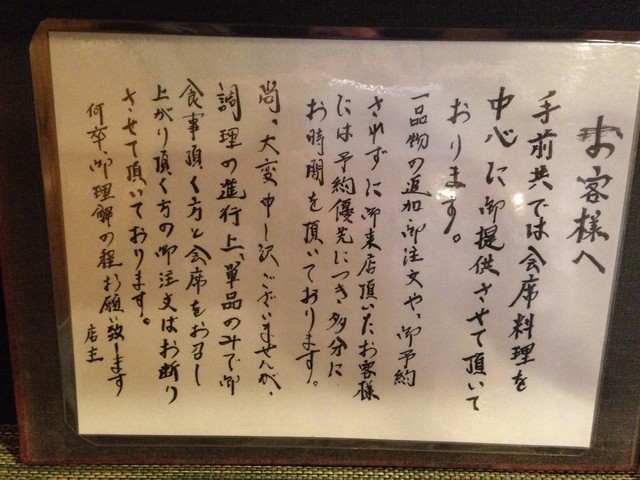 お客様へ
手前共では会席料理を
中心に御提供させて頂いて
おります。
一品物の追加御注文や、御予約
されずに御来店頂いたお客様
には予約優先につき多分に
お時間を頂いております。
尚、大変申し訳ございませんが、
調理の進行上、単品のみで御
食事頂く方と会席をお召し
上がり頂く方の御注文はお断り
させて頂いております。
何卒、御理解の程お願い致します
店主